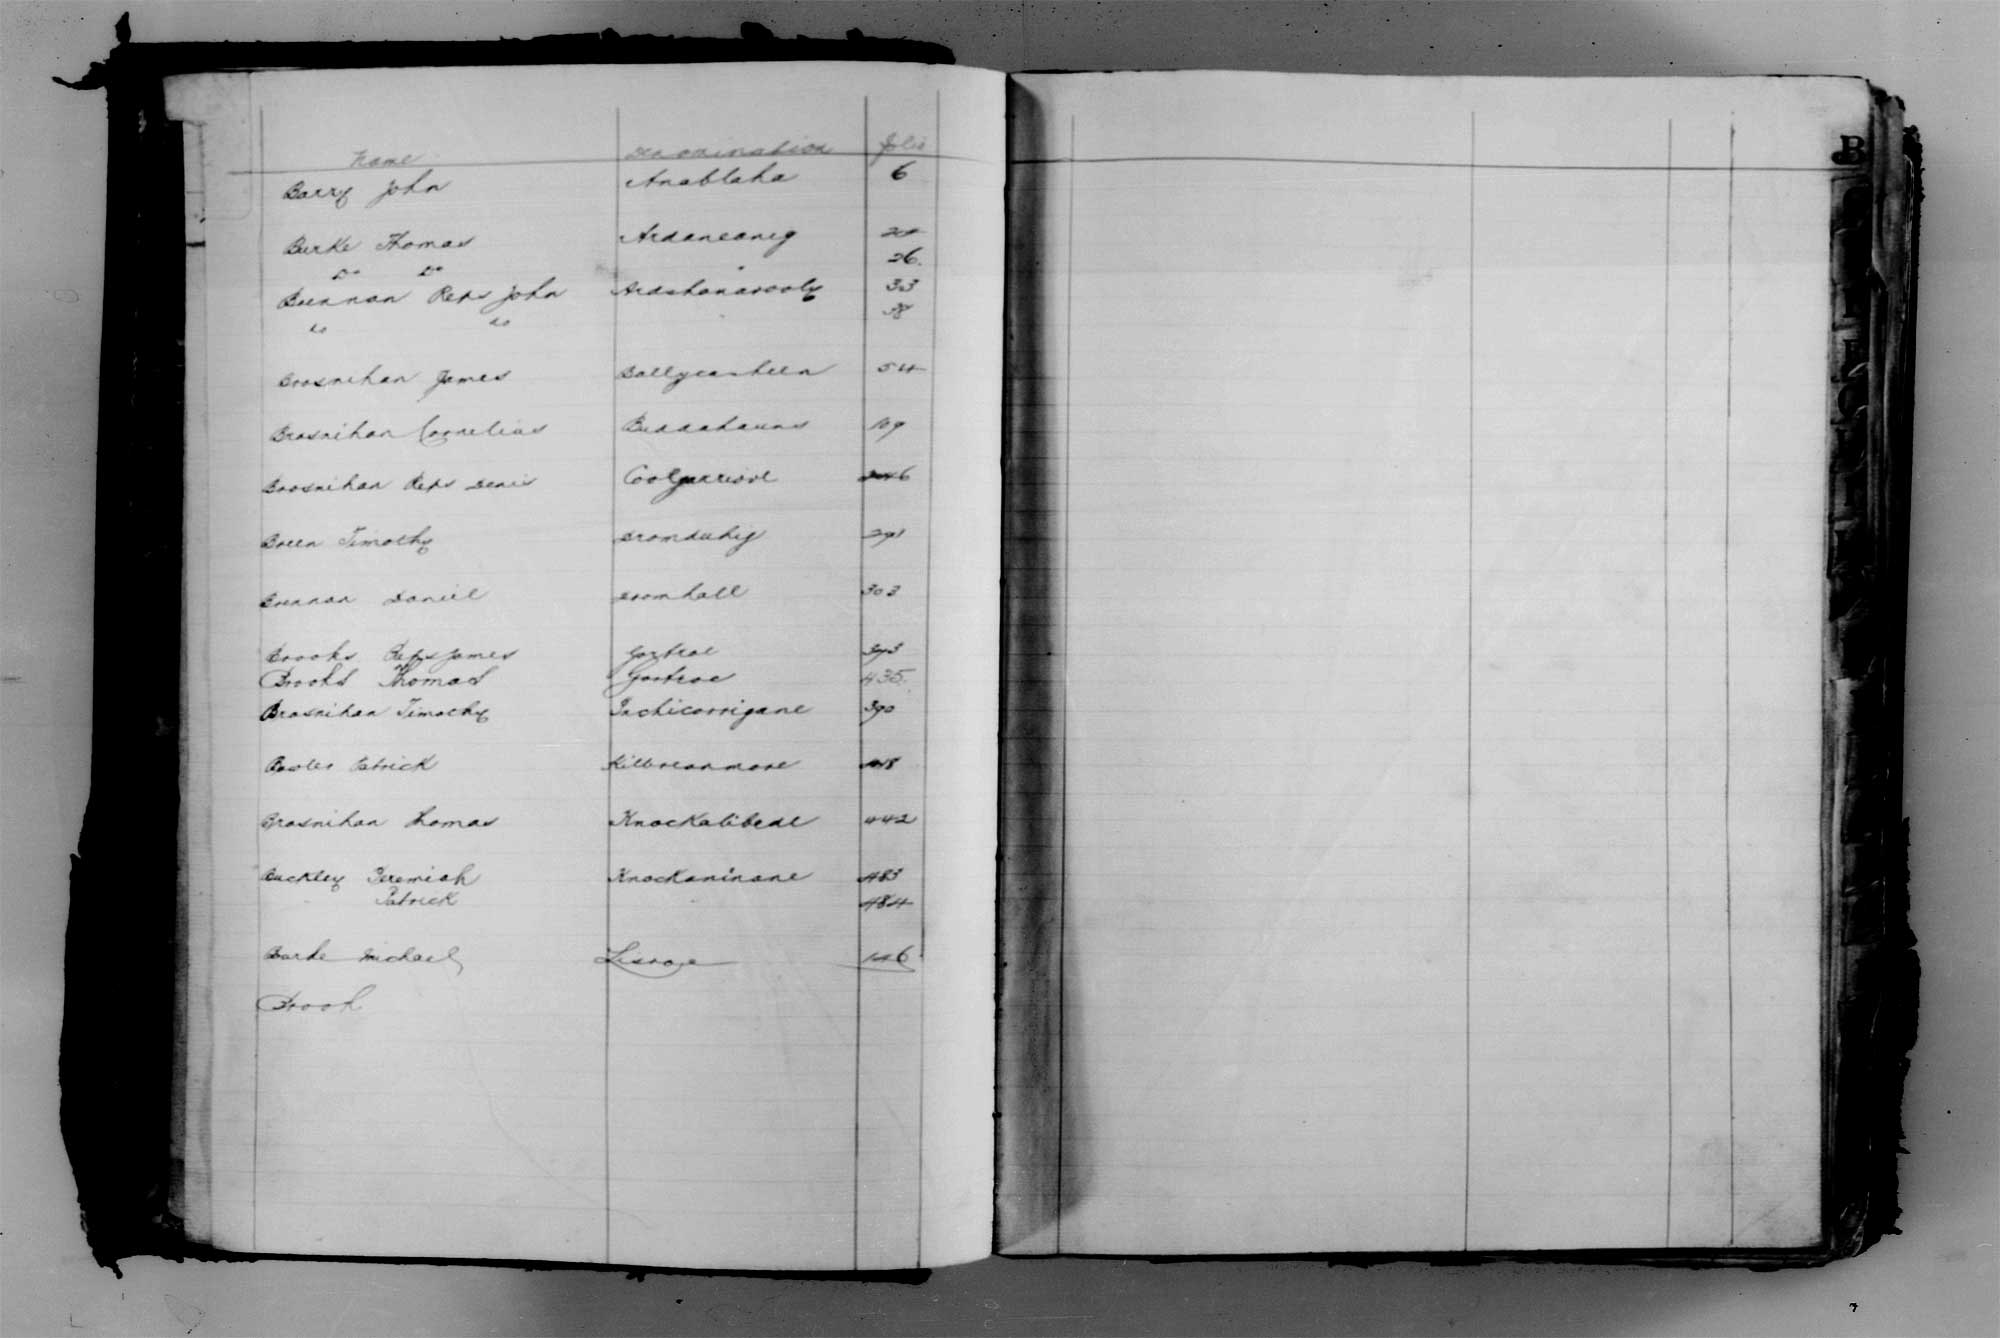 Name Denomination folio
B
Barry John Anablaha 6
Burke Thomas Ardaneanig
Do Do 26.
Brennan Reps John Ardshanavooly 33
do do 38
Brosnihan James Ballycasheen 54
Brosnihan Cornelius 109
Brosnihan Reps Denis Coolgarriv
Breen Timothy Dromduhig 291
Brennan Daniel Dromhall 303
Brooks Reps James Gortroe
Brooks Thomas Gortroe 435
Brosnihan Timothy Inchicorrigane 390
Patrick Kilbreanmore
Brosnihan Thomas Knockalibede 442
Buckley Jeremiah Knockaninane 483
Patrick 484
Michael Lisroe
Brook